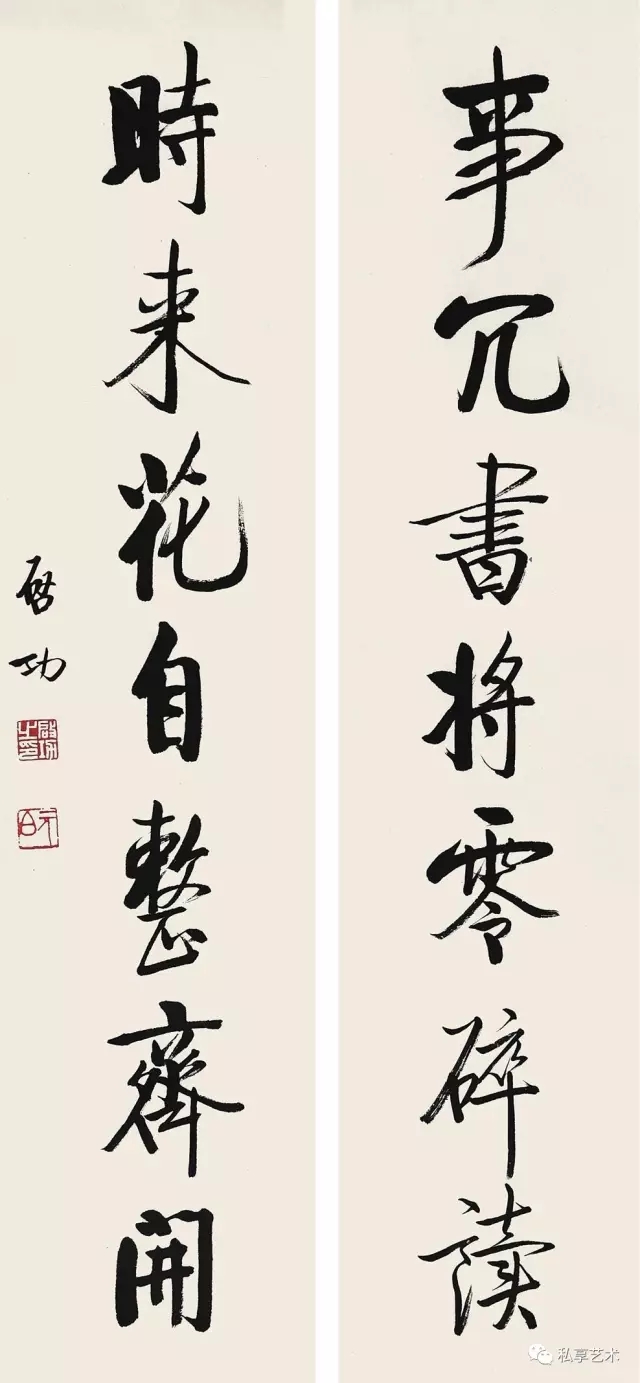 事冗書將零碎讀
時來花自整齊開
啓功
啓功之印
元白
私享艺术